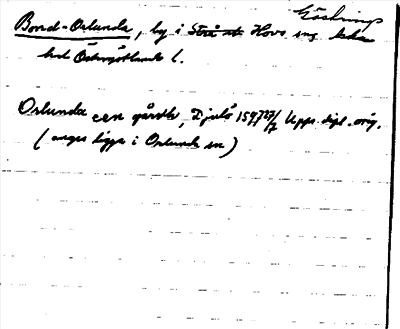 Göstring
Bond-Orlunda, by i Strå sn Hovs sng
hd Östergötlands l.
Orlunda een gårdh, Djulö 1577 27/7 Upps. dipl. orig.
(anges ligga i Orlunda sn)